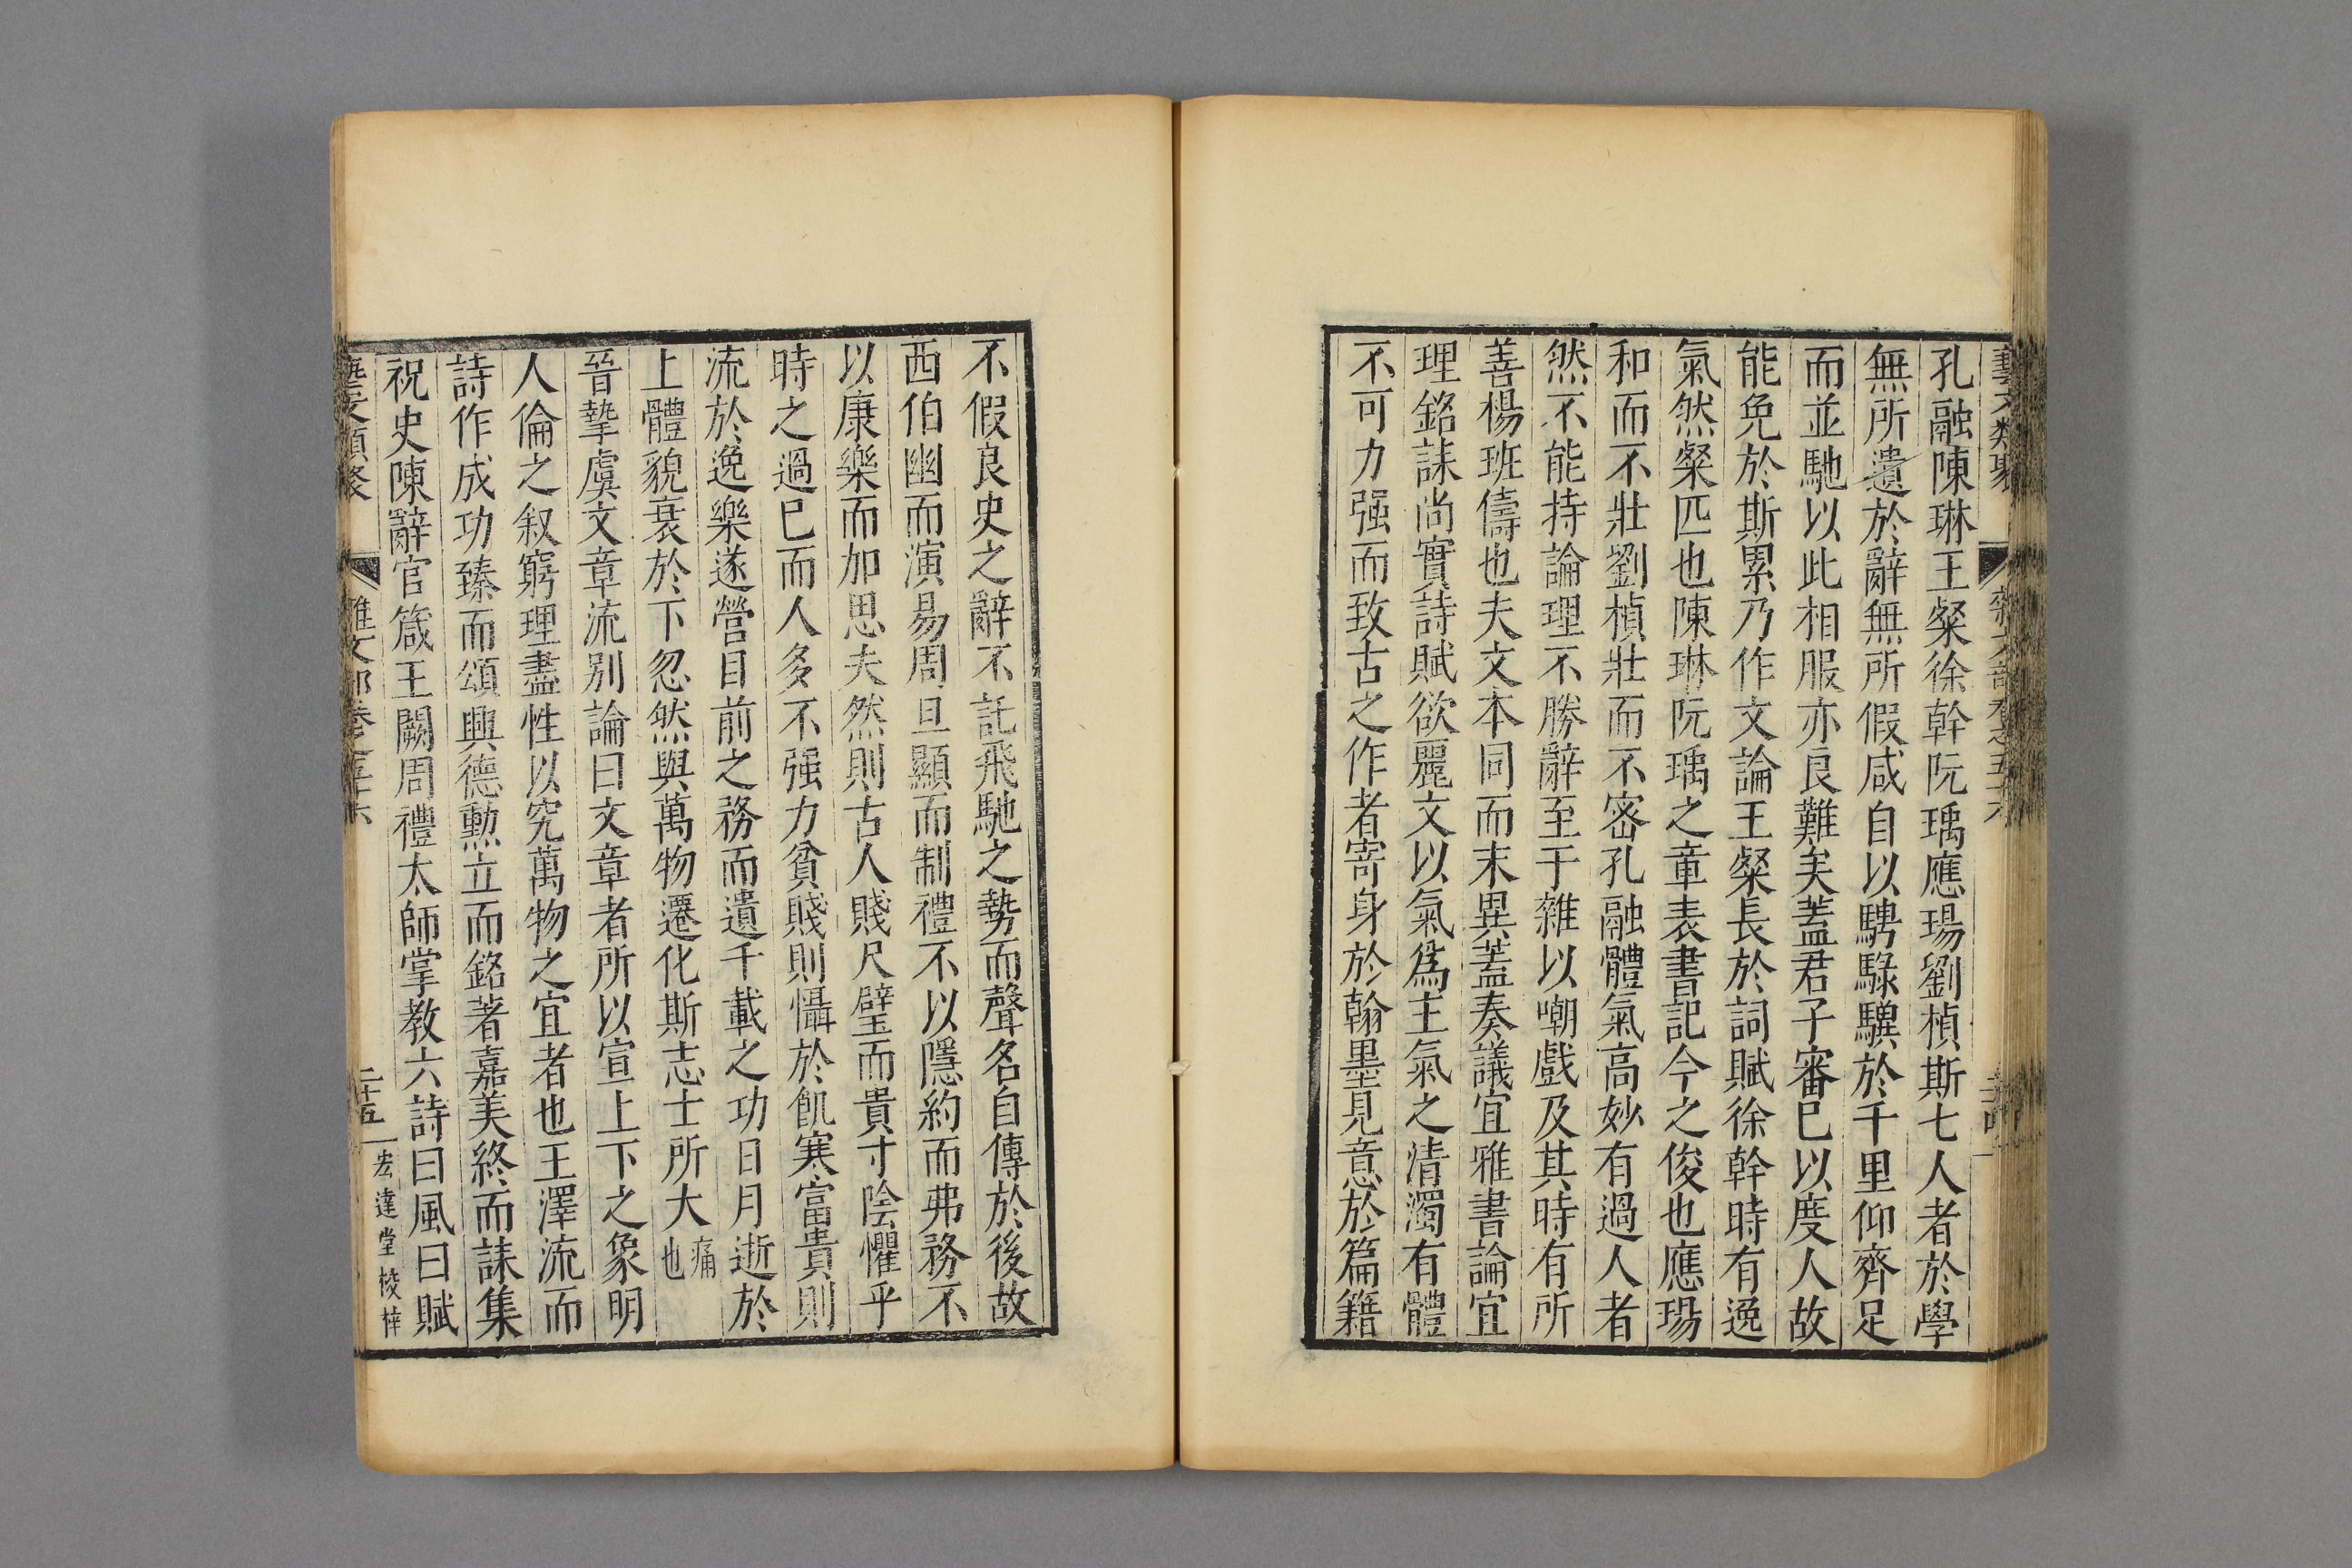 孔融陳琳王粲徐幹阮瑀應瑒劉楨斯七人者於學
無所遺於辭無所假咸自以騁騄驥於千里仰齊足
而並馳以此相服亦良難矣蓋君子審己以度人故
能免於斯累乃作文論王粲長於詞賦徐幹時有逸
氣然粲匹也陳琳阮瑀之章表書記今之俊也應瑒
和而不壯劉楨壯而不密孔融體氣高妙有過人者
然不能持論理不勝辭至于雜以嘲戲及其時有所
善楊班儔也夫文本同而末異蓋奏議宜雅書論宜
理銘誄尚實詩賦欲麗文以氣爲主氣之清濁有體
不可力强而致古之作者寄身於翰墨見意於篇籍
不假良史之辭不託飛馳之勢而聲名自傳於後故
西伯幽而演易周旦顯而制禮不以隱約而弗務不
以康樂而加思夫然則古人賤尺璧而貴寸陰懼乎
時之過已而人多不强力貧賤則懾於飢寒富貴則
流於逸樂遂營目前之務而遺千載之功日月逝於
上體貌衰於下忽然與萬物遷化斯志士所大痛也
晉摯虞文章流别論曰文章者所以宣上下之象明
人倫之叙窮理盡性以究萬物之宜者也王澤流而
詩作成功臻而頌興德勲立而銘著嘉美終而誄集
祝史陳辭官箴王闕周禮太師掌教六詩曰風曰賦
藝文類聚 雜文部卷之五十六 二十五 宏達堂校梓